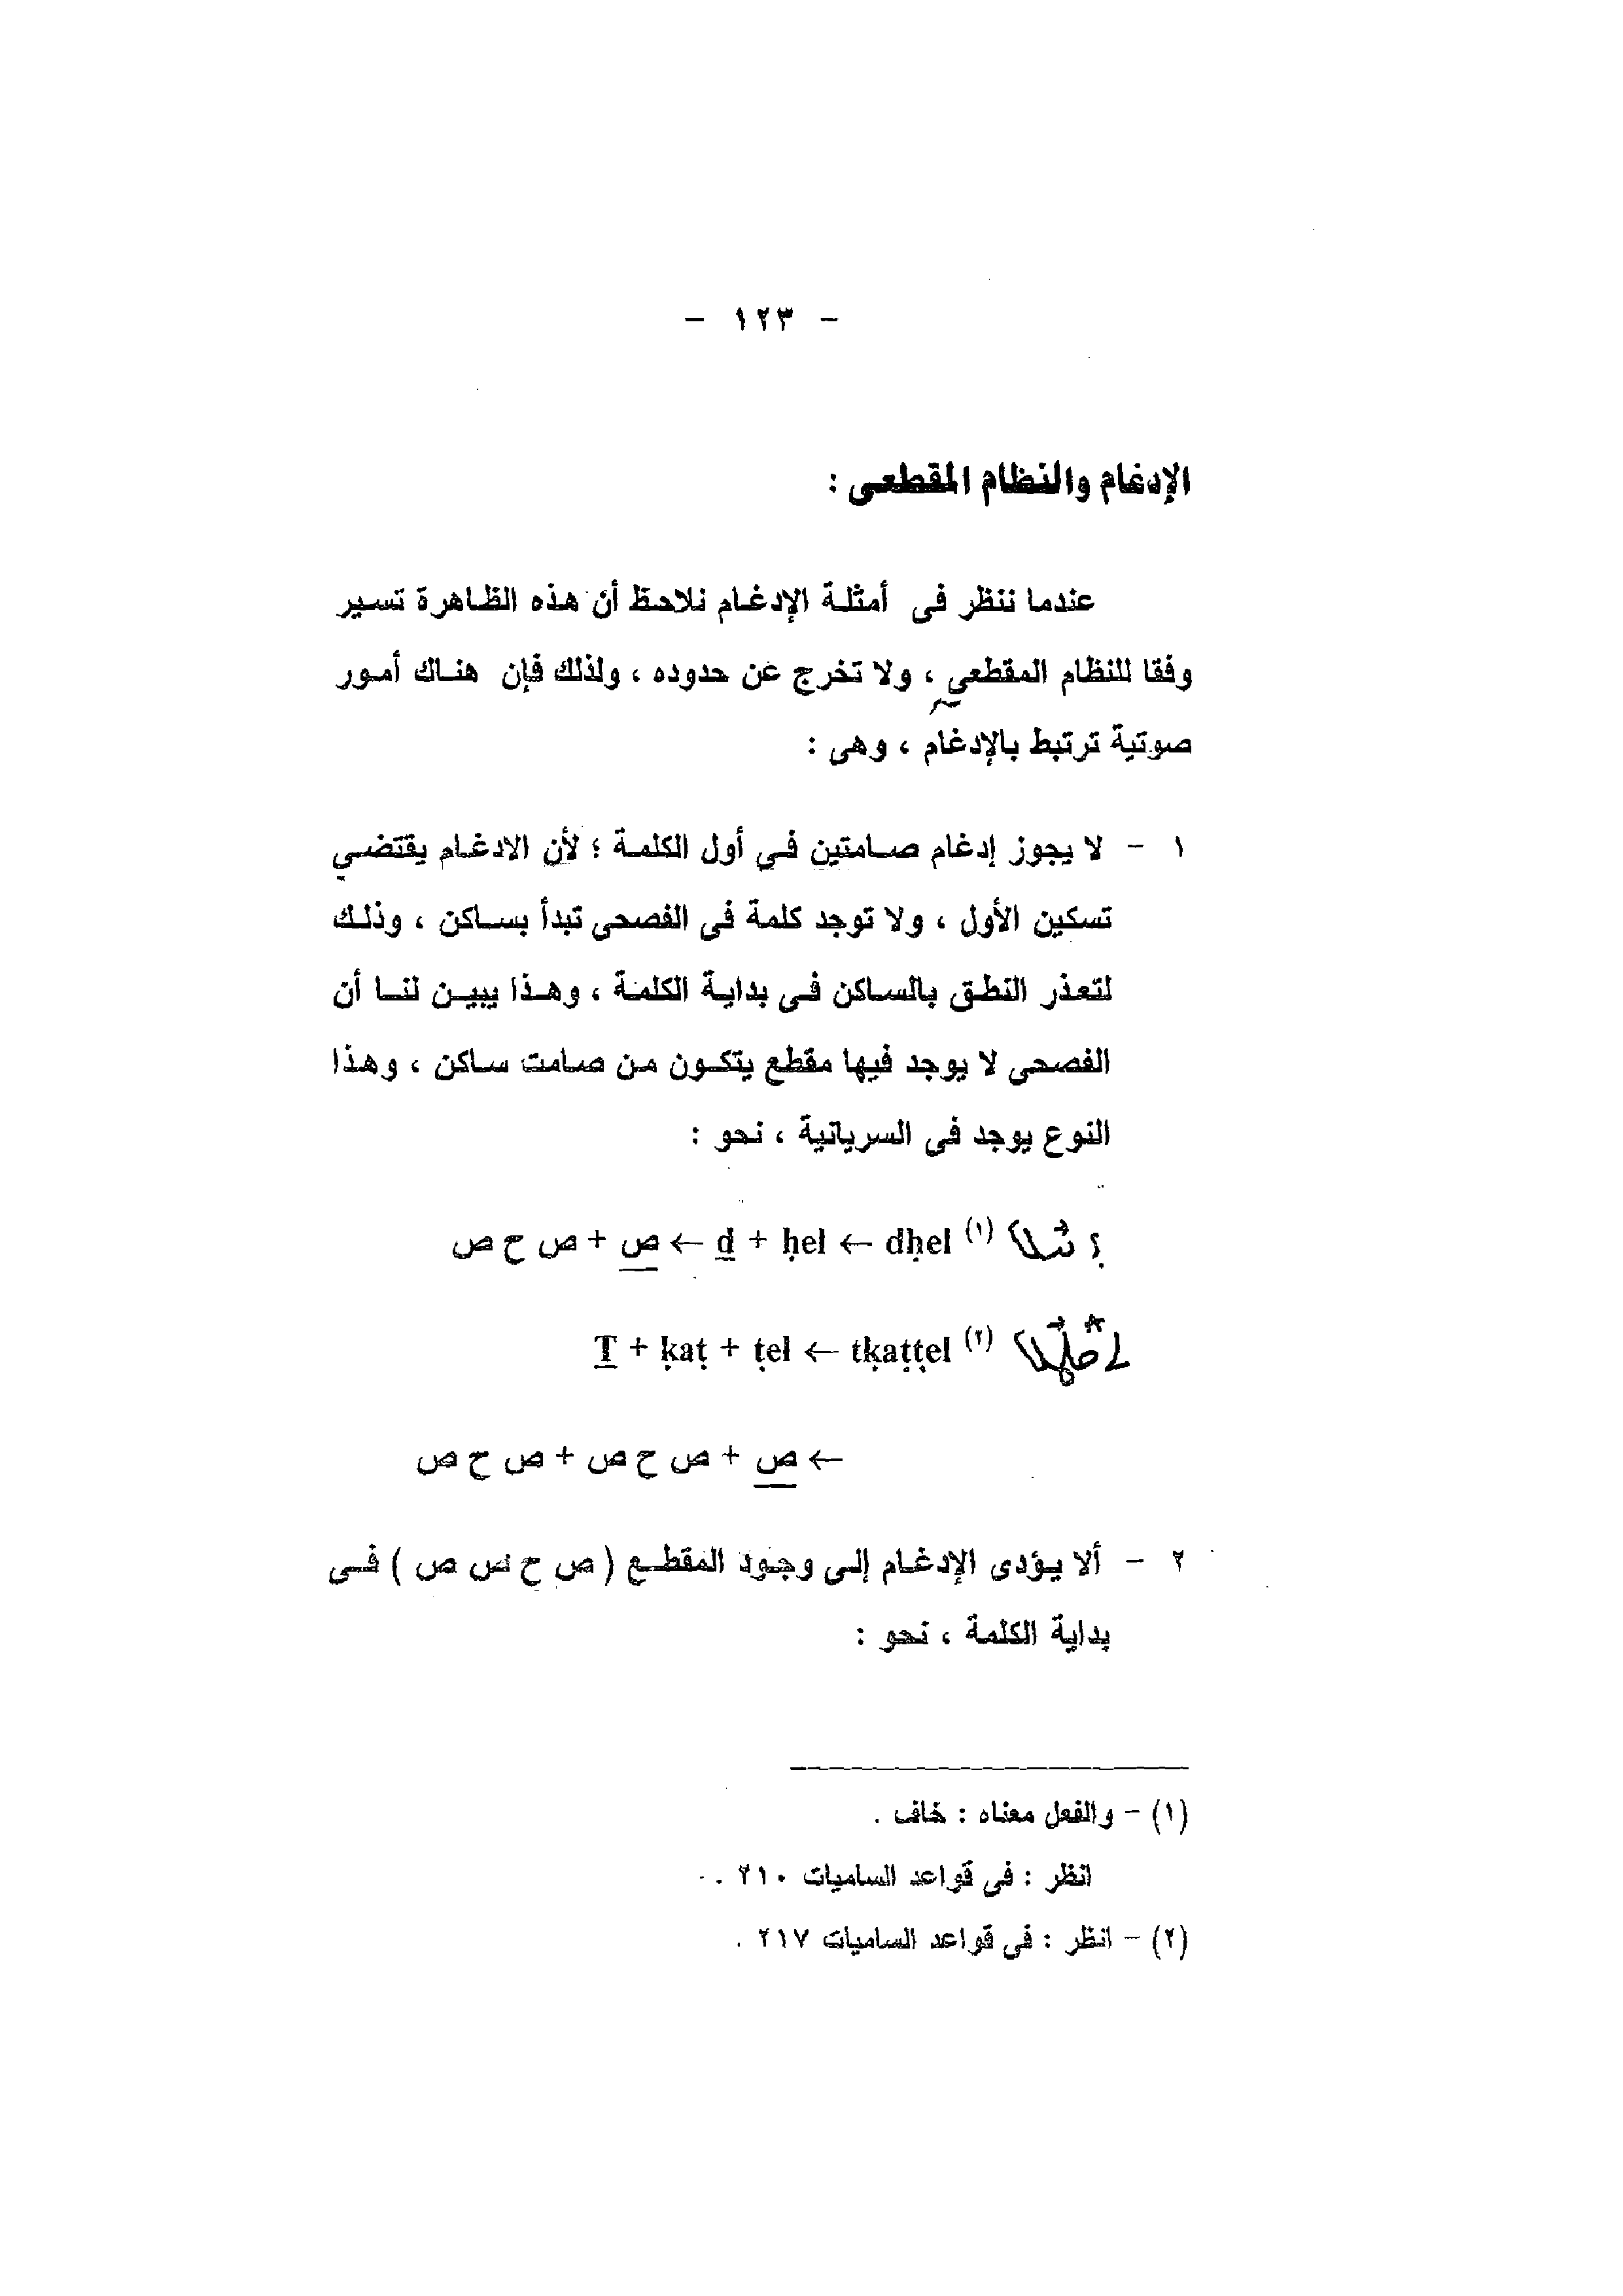 - ١٢٣ -
الإدغام والنظام المقطعى :
عندما ننظر فى أمثلة الإدغام نلاحظ أن هذه الظاهرة تسير
وفقا للنظام المقطعي ، ولا تخرج عن حدوده ، ولذلك فإن هناك أمور
صوتية ترتبط بالإدغام ، وهى :
١ - لا يجوز إدغام صامتين في أول الكلمة ؛ لأن الادغام يقتضي
تسكين الأول ، ولا توجد كلمة فى الفصحى تبدأ بساكن ، وذلك
لتعذر النطق بالساكن فى بداية الكلمة ، وهذا يبين لنا أن
الفصحى لا يوجد فيها مقطع يتكون من صامت ساكن ، وهذا
النوع يوجد فى السريانية ، نحو :
(١) dḥel ← ḥel + d ← ص + ص ح ص
(٢) tḳaṭṭel ← T + ḳaṭ + ṭel
← ص + ص ح ص + ص ح ص
٢ - ألا يؤدى الإدغام إلى وجود المقطع ( ص ح ص ص ) فى
بداية الكلمة ، نحو :
(١) - والفعل معناه : خاف .
انظر : فى قواعد الساميات ٢١٠ .
(٢) - انظر : فى قواعد الساميات ٢١٧ .